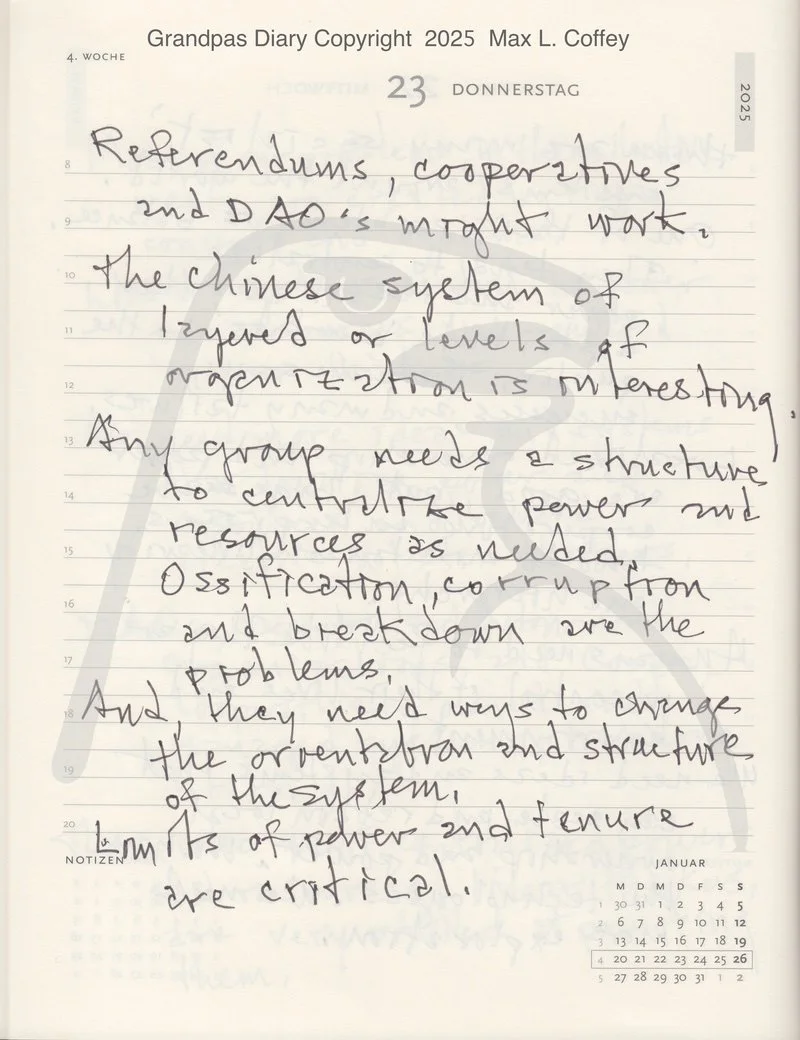 Grandpas Diary Copyright 2025 Max L. Coffey
4. WOCHE
23 DONNERSTAG
2025
8 Referendums, cooperatives
9 and DAO's might work.
10 The Chinese system of
11 layered or levels of
12 organization is interesting.
13 Any group needs a structure
14 to centralize power and
15 resources as needed.
Ossification, corruption
16 and breakdown are the
17 problems.
18 And, they need ways to change
the orientation and structure
19 of the system.
20 Limits of power and tenure
NOTIZEN
are critical.
JANUAR
M D M D F S S
1 30 31 1 2 3 4 5
2 6 7 8 9 10 11 12
3 13 14 15 16 17 18 19
4 20 21 22 23 24 25 26
5 27 28 29 30 31 1 2